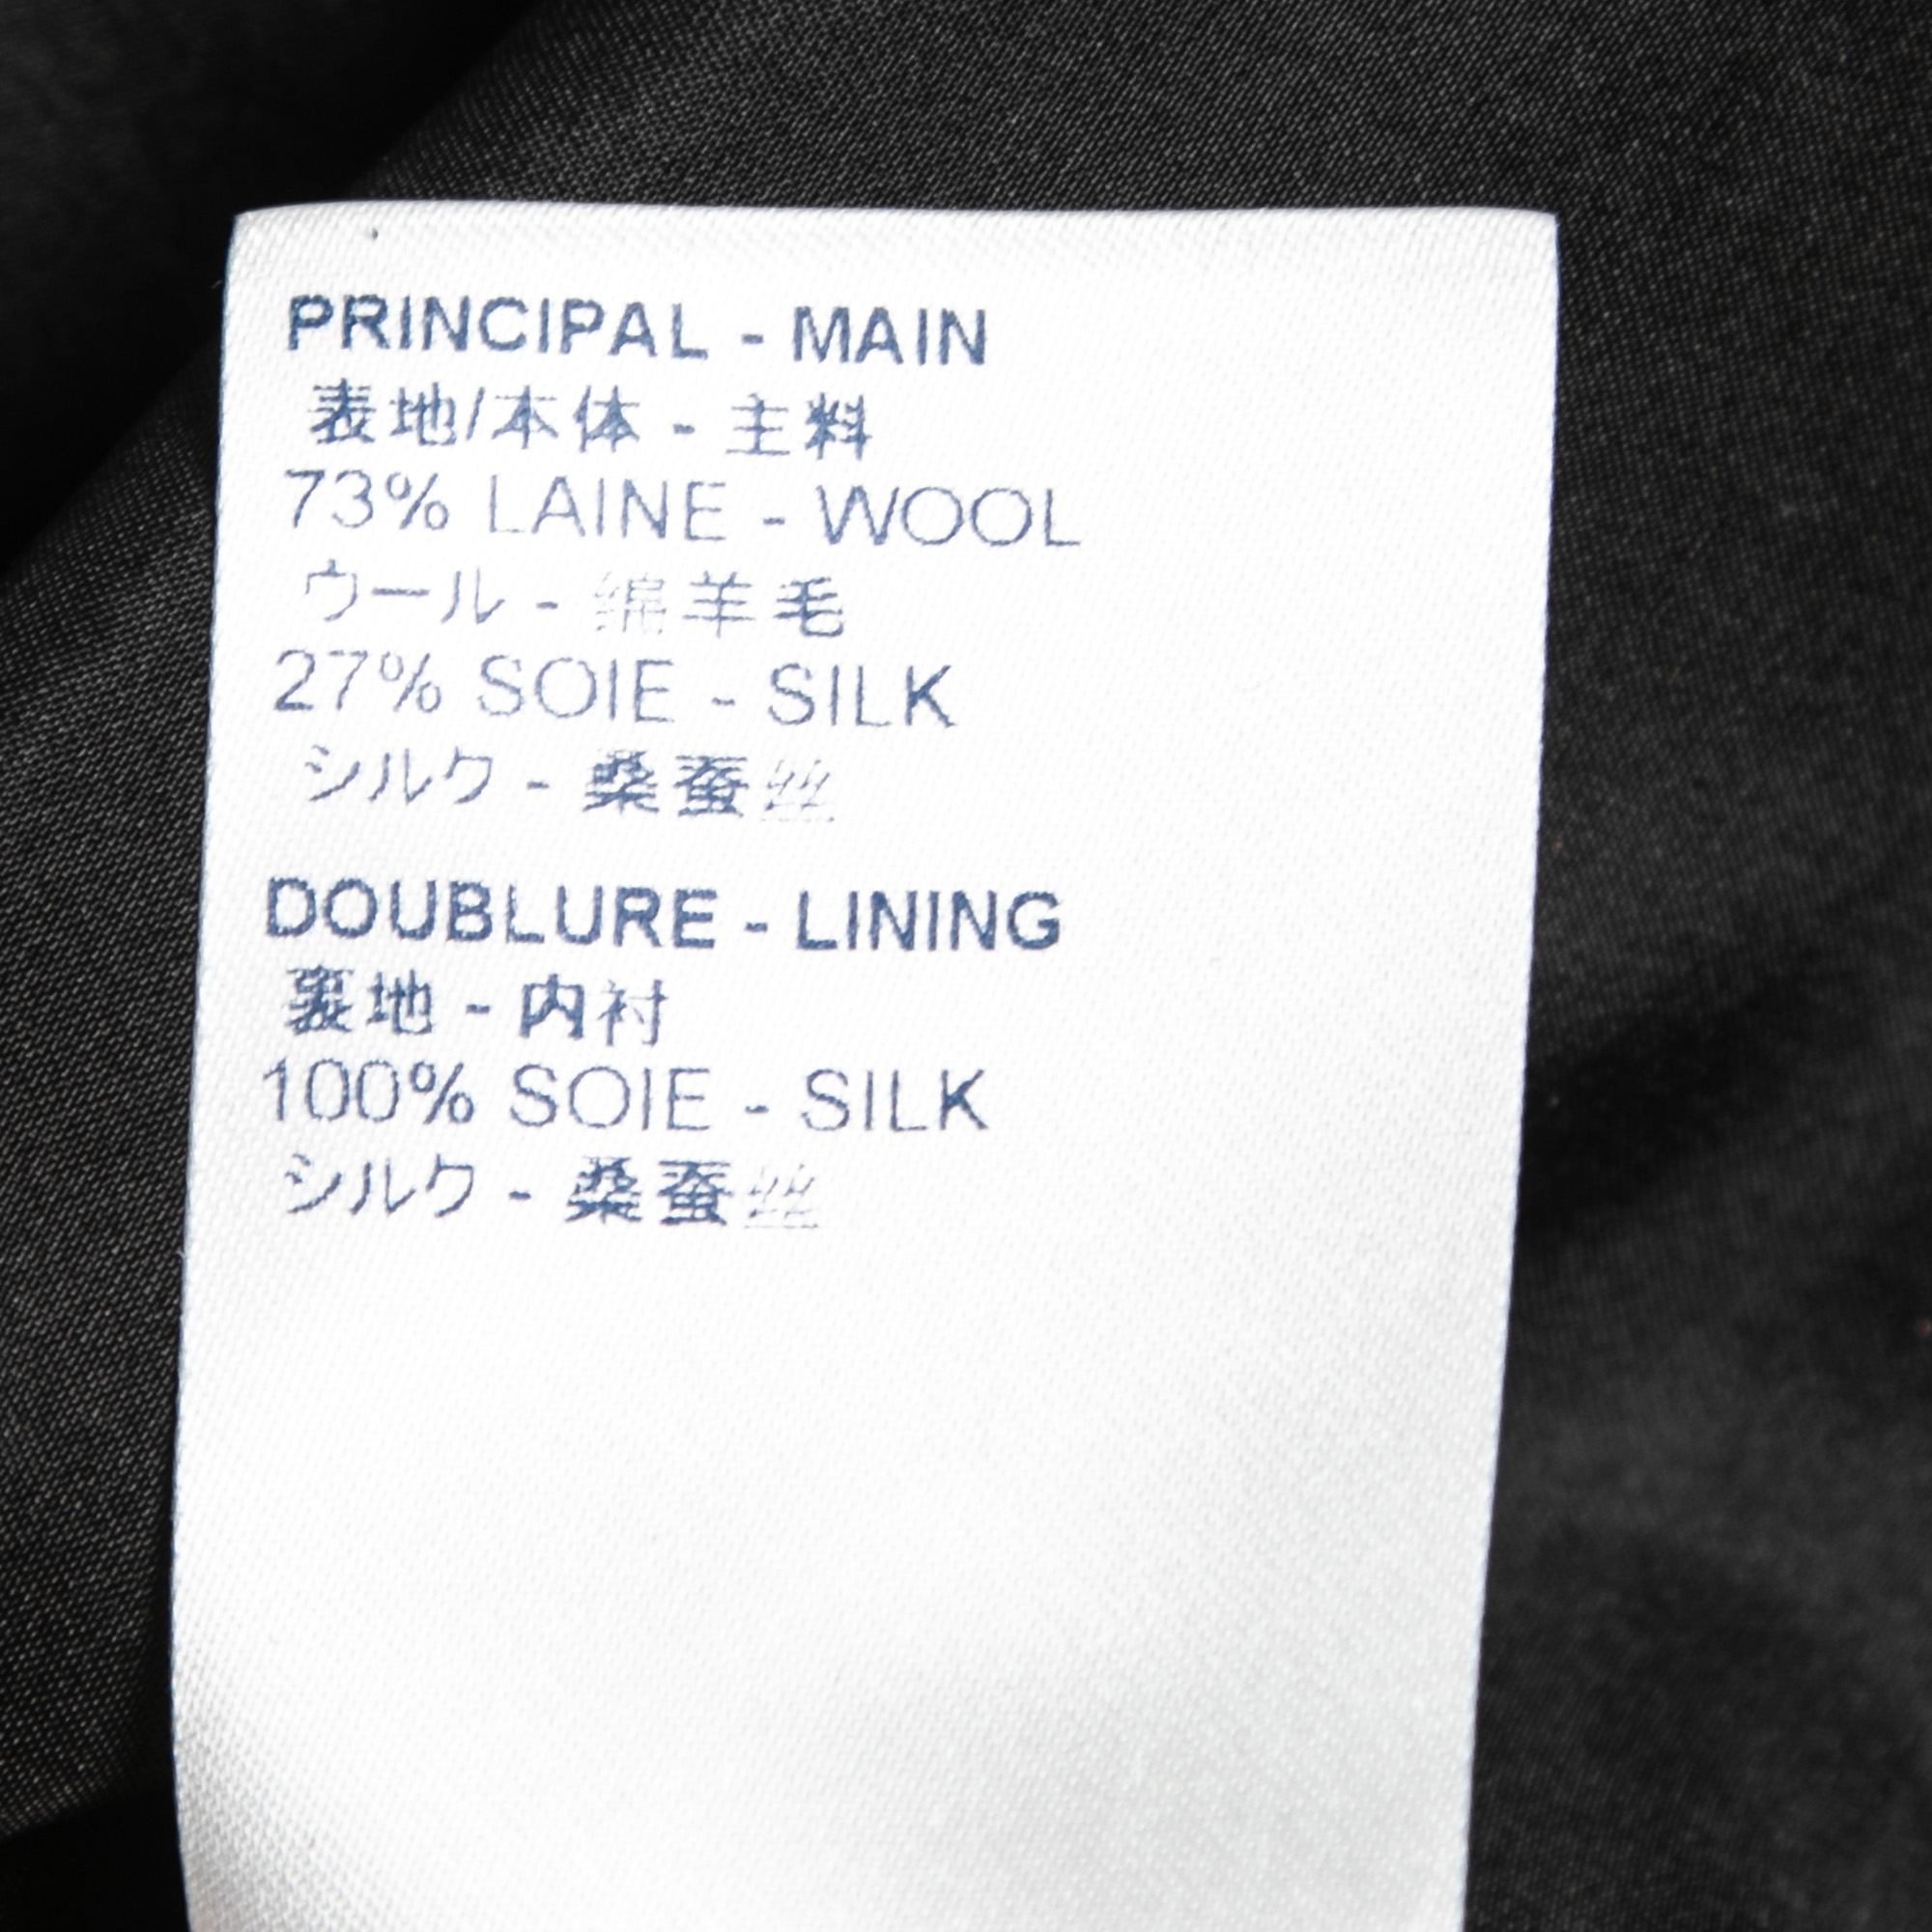 PRINCIPAL - MAIN
表地/本体 - 主料
73% LAINE - WOOL
ウール - 绵羊毛
27% SOIE - SILK
シルク - 桑蚕丝
DOUBLURE - LINING
裏地 - 内衬
100% SOIE - SILK
シルク - 桑蚕丝